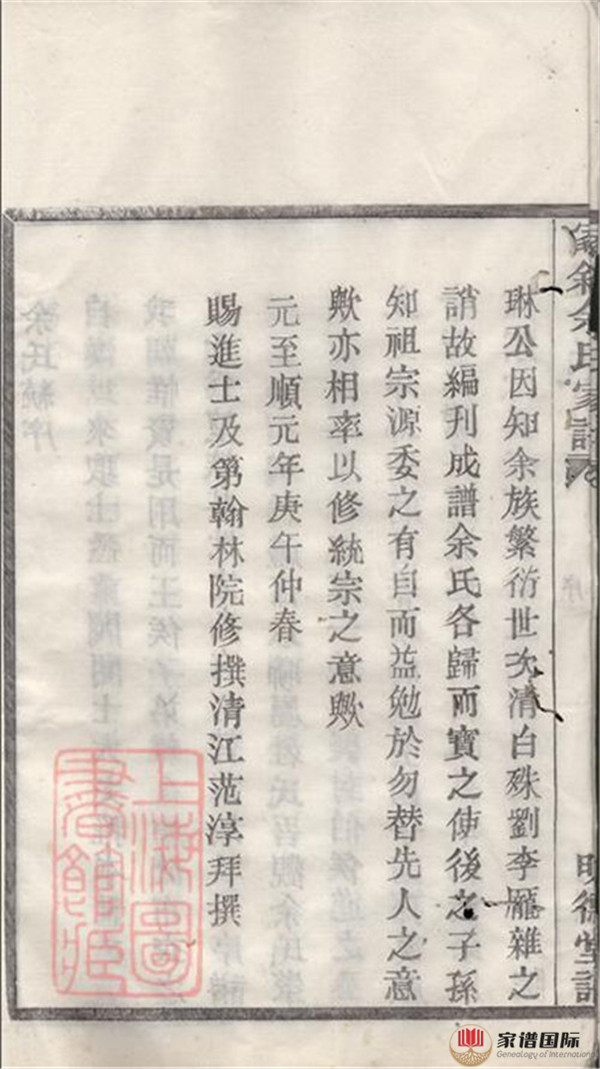 余氏家譜
序
明德堂記
琳公因知余族繁衍世次清白殊劉李龐雜之
誚故編刊成譜余氏各歸而寶之使後之子孫
知祖宗源委之有自而益勉於勿替先人之意
歟亦相率以修統宗之意歟
元至順元年庚午仲春
賜進士及第翰林院修撰清江范淳拜撰
上海圖書館藏
家谱国际
Genealogy of International